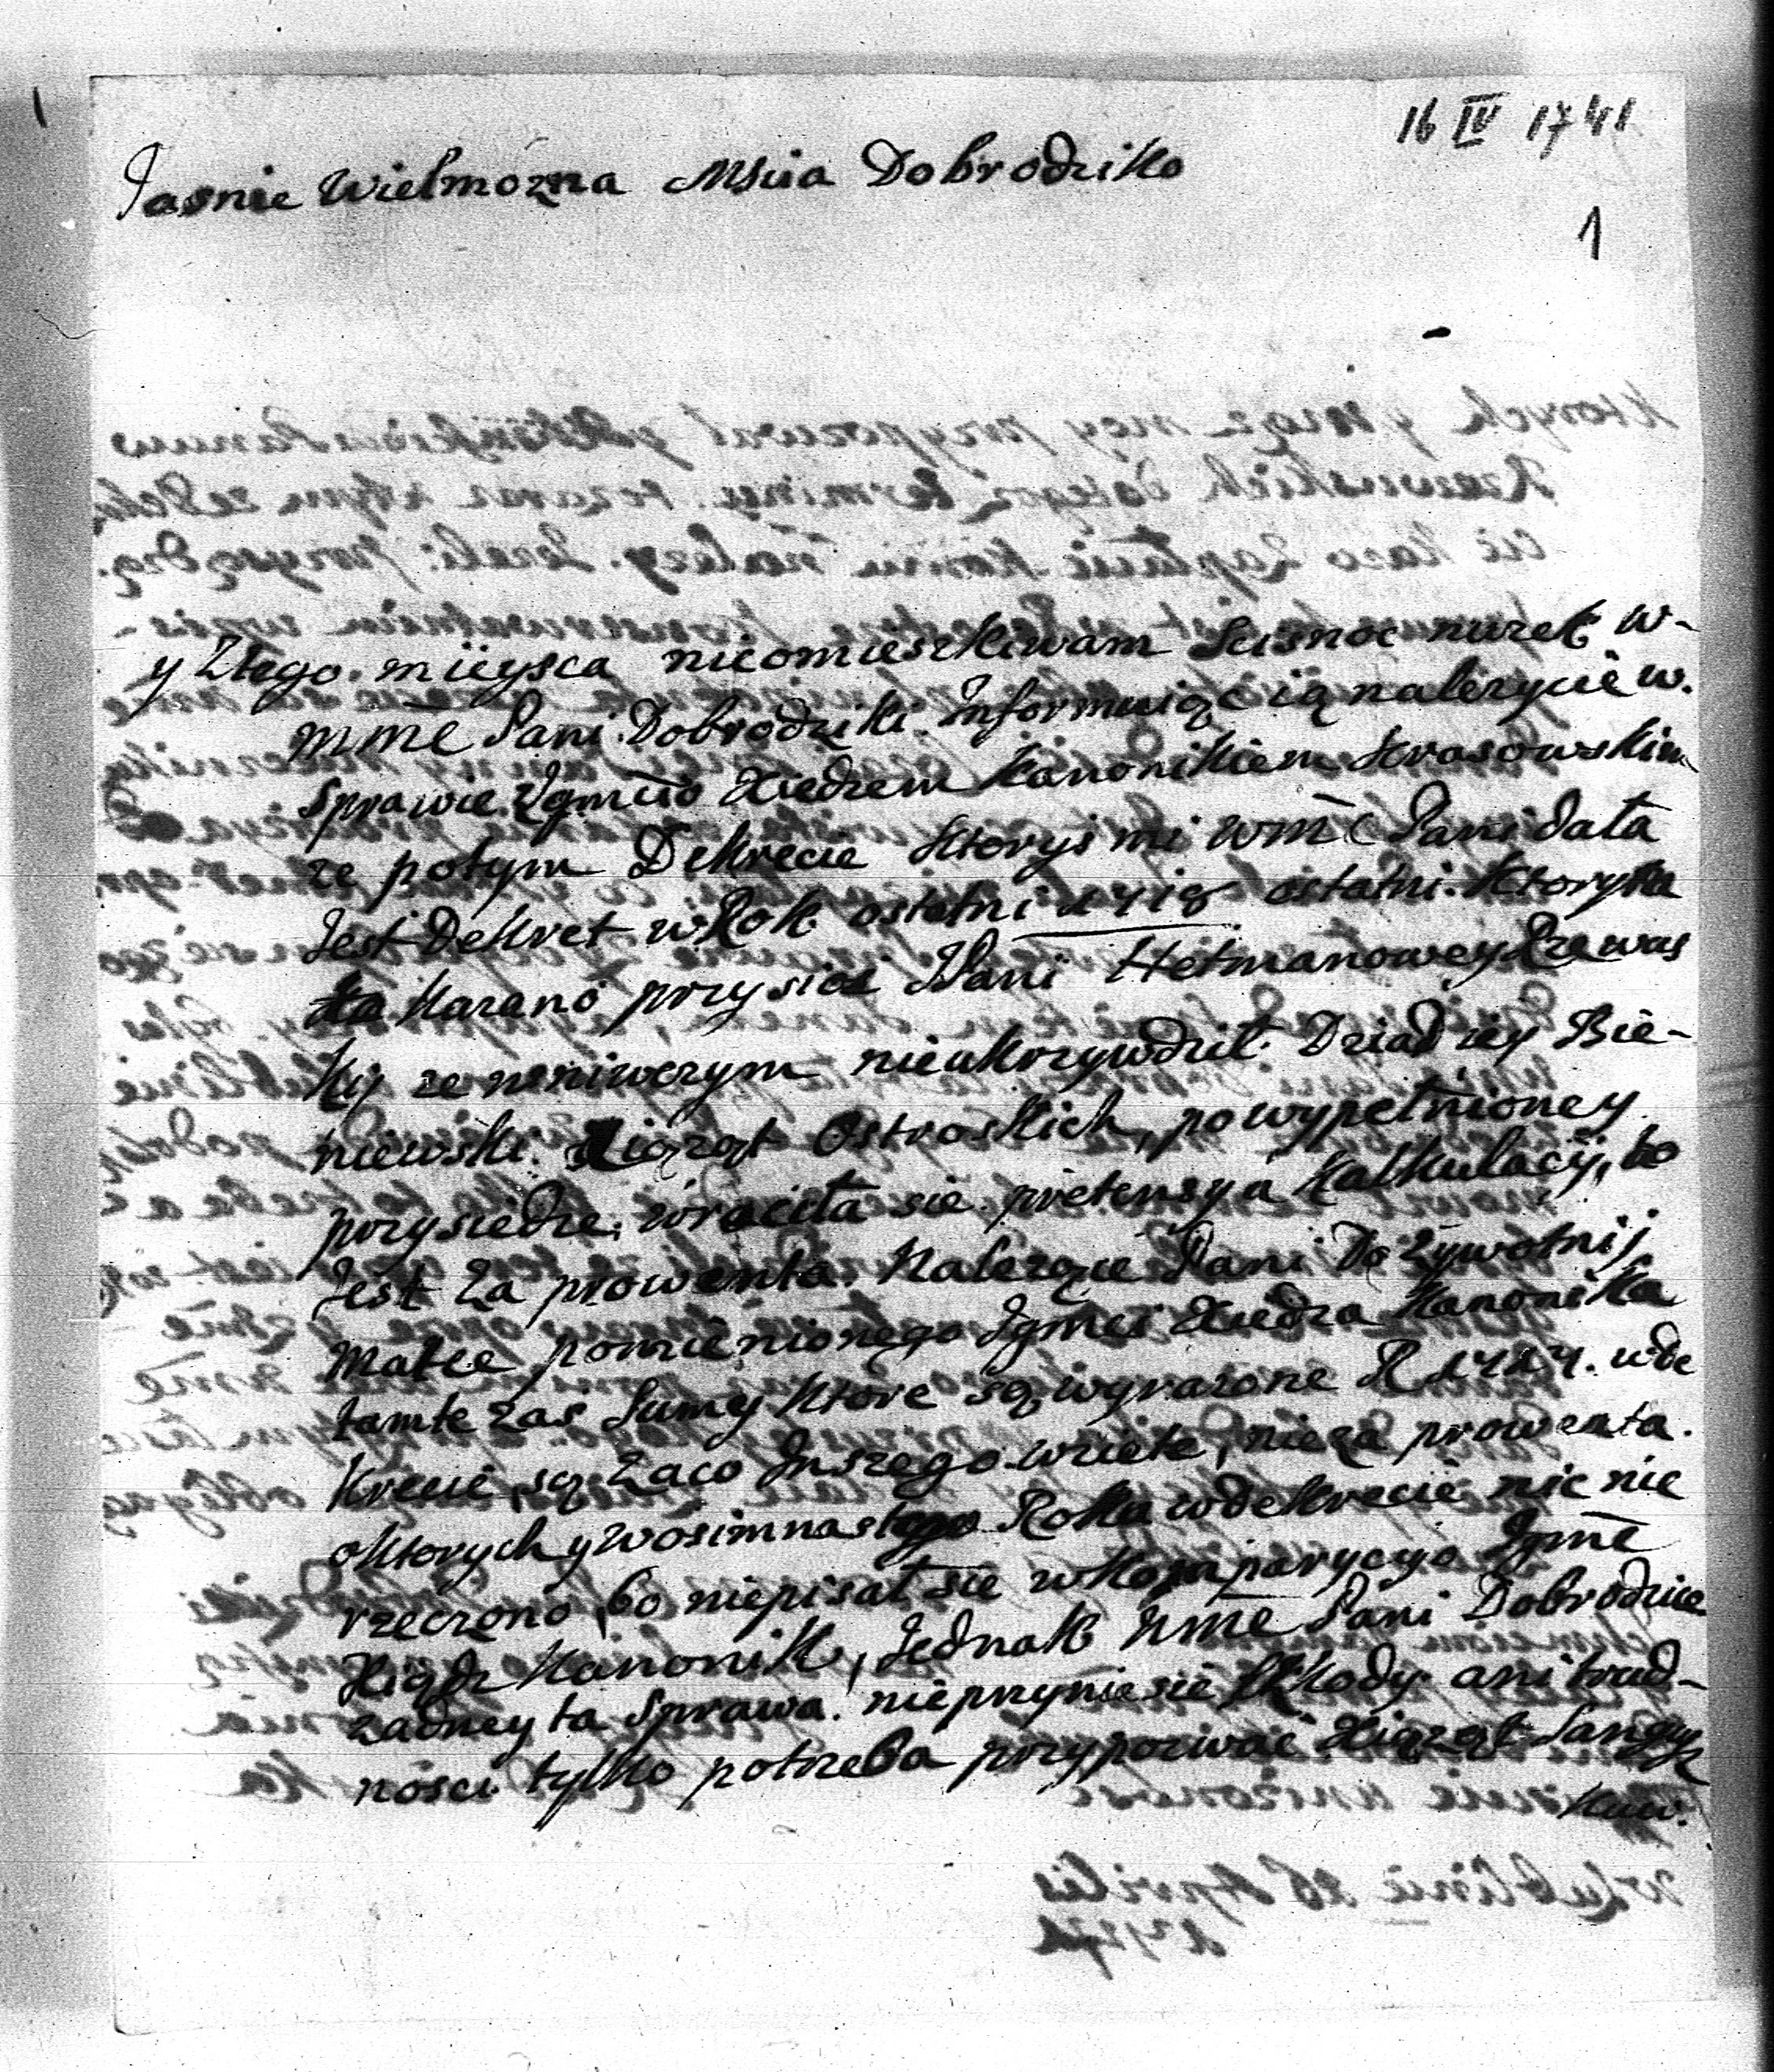 16 IV 1741
Jasnie Wielmozna Mscia Dobrodziko
1
y Ztego. mieysca nieomieszkiwam Scisnoc nuzek w-
mmc Pani Dobrodziki. Informuiąc ią nalezycie w.
sprawie Zgmcio Xiedzem Kanonikiem Krasowskim
ze potym Dekrecie Ktorys mi wmc Pani dała
Jest Dekret w Rok ostatni 1718 ostatni. Ktorym
Kazano przysiąc Pani Hetmanowey Rzewus
Ky ze wniwczym nieukrzywdził. Dziad iey Bie-
niewski. Xiąząt Ostroskich, powypełnioney
przysiedze, wrociła sie pretensya Kalkulacij, to
Jest Za prowenta. Nalezące Pani Dozywotnij
Matce pomienionego Jgmci Xiedza Kanonika
tamte zas Sumy Ktore są wyrazone R 1717. wde
Krecie, są Zaco Inszego wziete, nieza prowenta.
oKtorych y wosimnastego Roku wdekrecie nic nie
rzeczono, bo niepisał sie wkomparycyo Jgmc
Xiądz Kanonik, Jednak wmc Pani Dobrodzice
zadney ta Sprawa. nieprzyniesie Szkody ani trud-
nosci tylko potrzeba przypozwać Xiąząt Sangusz
Kuw.